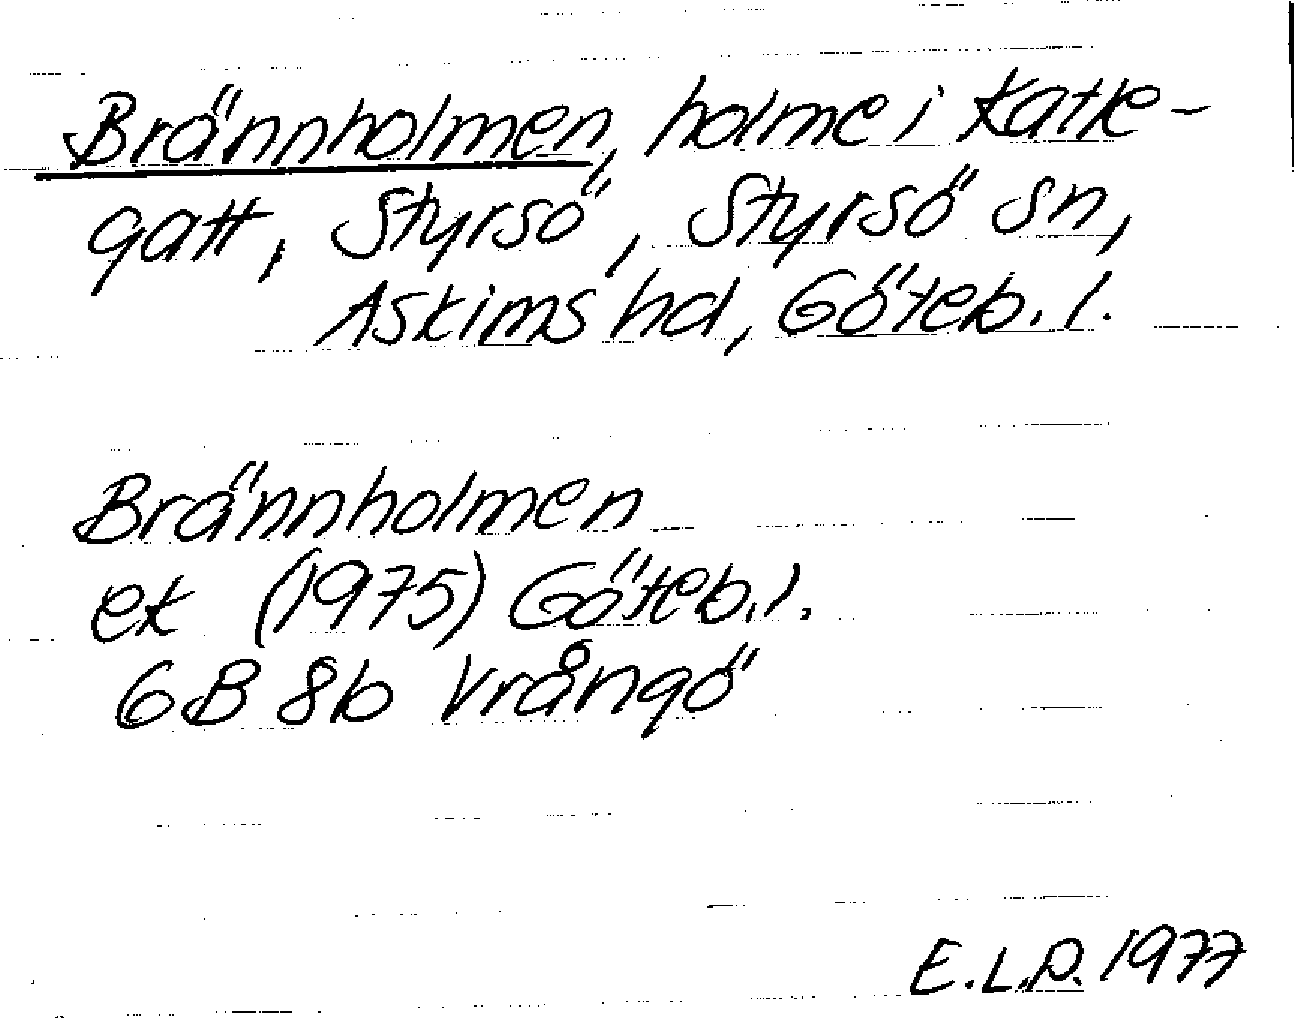 Brännholmen, holme i Katte-
gatt, Styrsö, Styrsö sn,
Askims hd, Göteb. l.
Brännholmen
ek (1975) Göteb. l.
6B 8b Vrångö
E.L.P. 1977